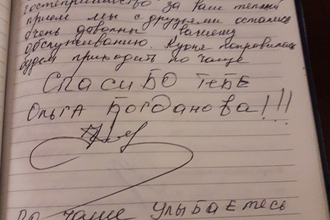 гостеприимство за Ваше теплый
прием мы с друзьями остались
очень довольны вашему
обслуживанию. Кухня понравилась
будем приходить по чаще
СПАСИБО ТЕБЕ
Ольга Богданова!!!
чаще улыбаетесь